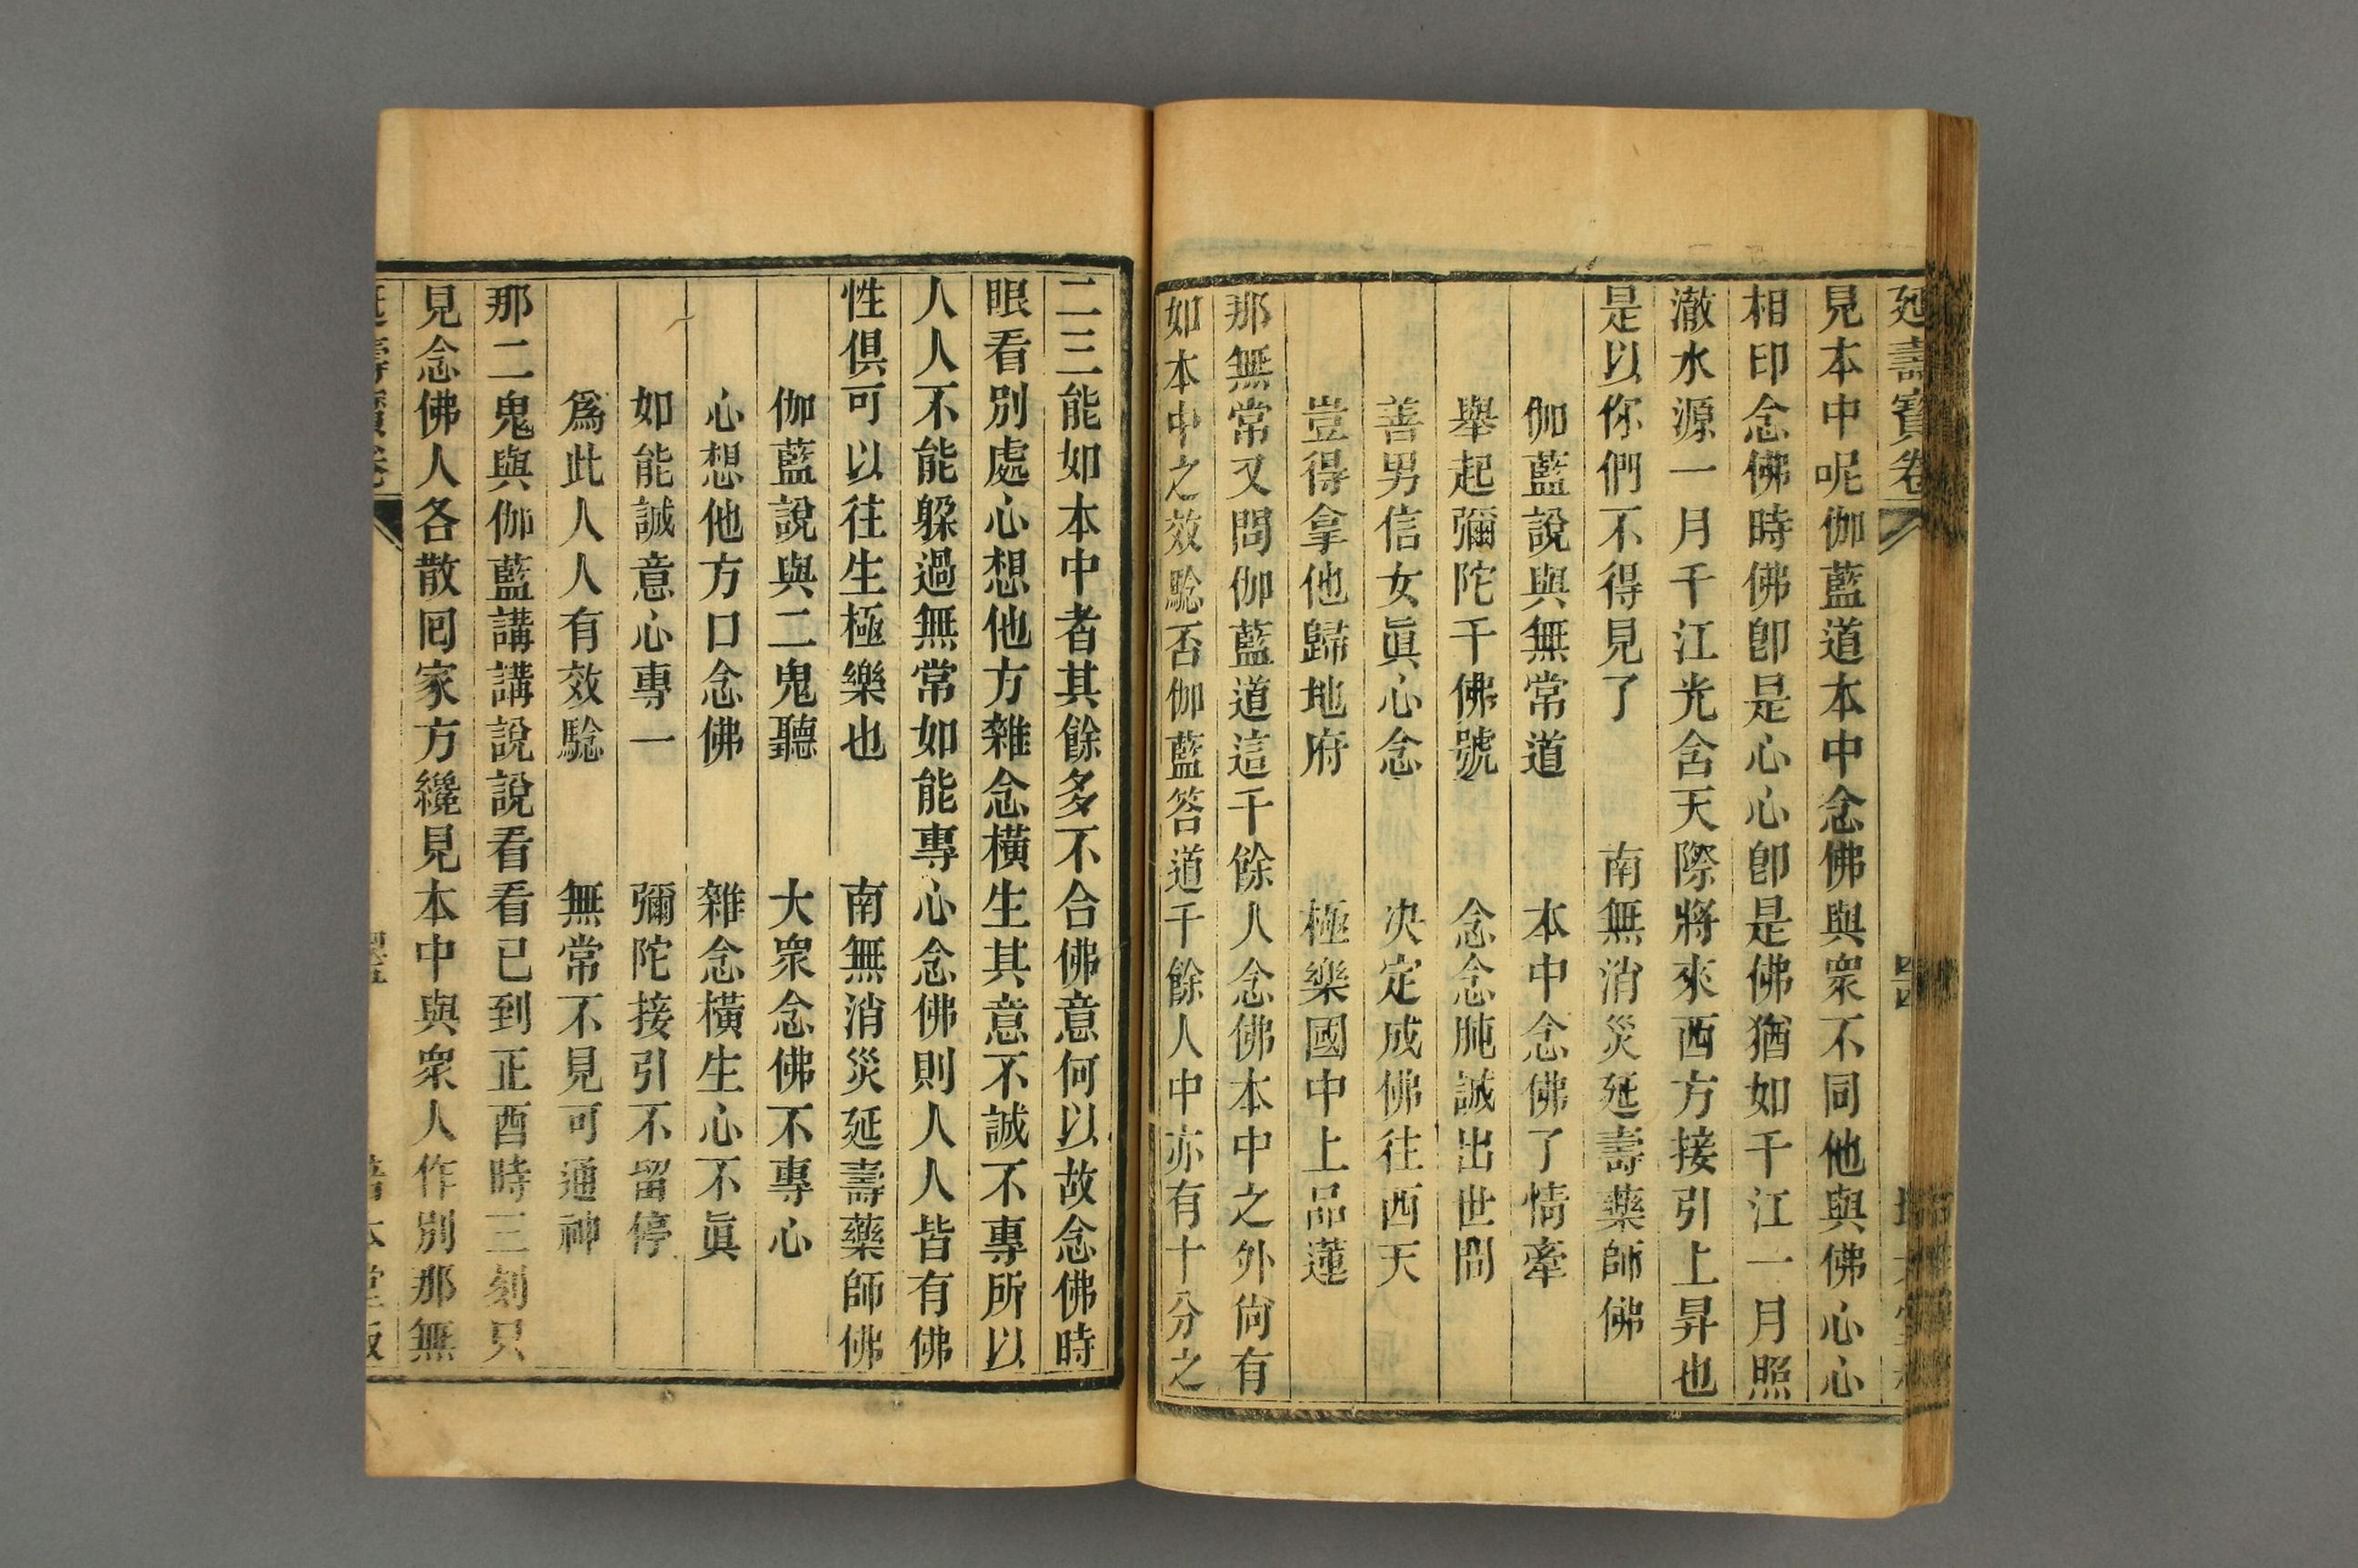 延壽寶卷
見本中呢伽藍道本中念佛與衆不同他與佛心心
相印念佛時佛卽是心心卽是佛猶如千江一月照
澈水源一月千江光含天際將來西方接引上昇也
是以你們不得見了　南無消災延壽藥師佛
伽藍說與無常道　本中念佛了情牽
舉起彌陀千佛號　念念肫誠出世間
善男信女眞心念　决定成佛往西天
豈得拿他歸地府　極樂國中上品蓮
那無常又問伽藍道這千餘人念佛本中之外尙有
如本中之效騐否伽藍答道千餘人中亦有十分之
二三能如本中者其餘多不合佛意何以故念佛時
眼看別處心想他方雜念橫生其意不誠不專所以
人人不能躲過無常如能專心念佛則人人皆有佛
性俱可以往生極樂也　南無消災延壽藥師佛
伽藍說與二鬼聽　大衆念佛不專心
心想他方口念佛　雜念橫生心不眞
如能誠意心專一　彌陀接引不留停
爲此人人有效騐　無常不見可通神
那二鬼與伽藍講講說說看看已到正酉時三刻只
見念佛人各散囘家方纔見本中與衆人作別那無